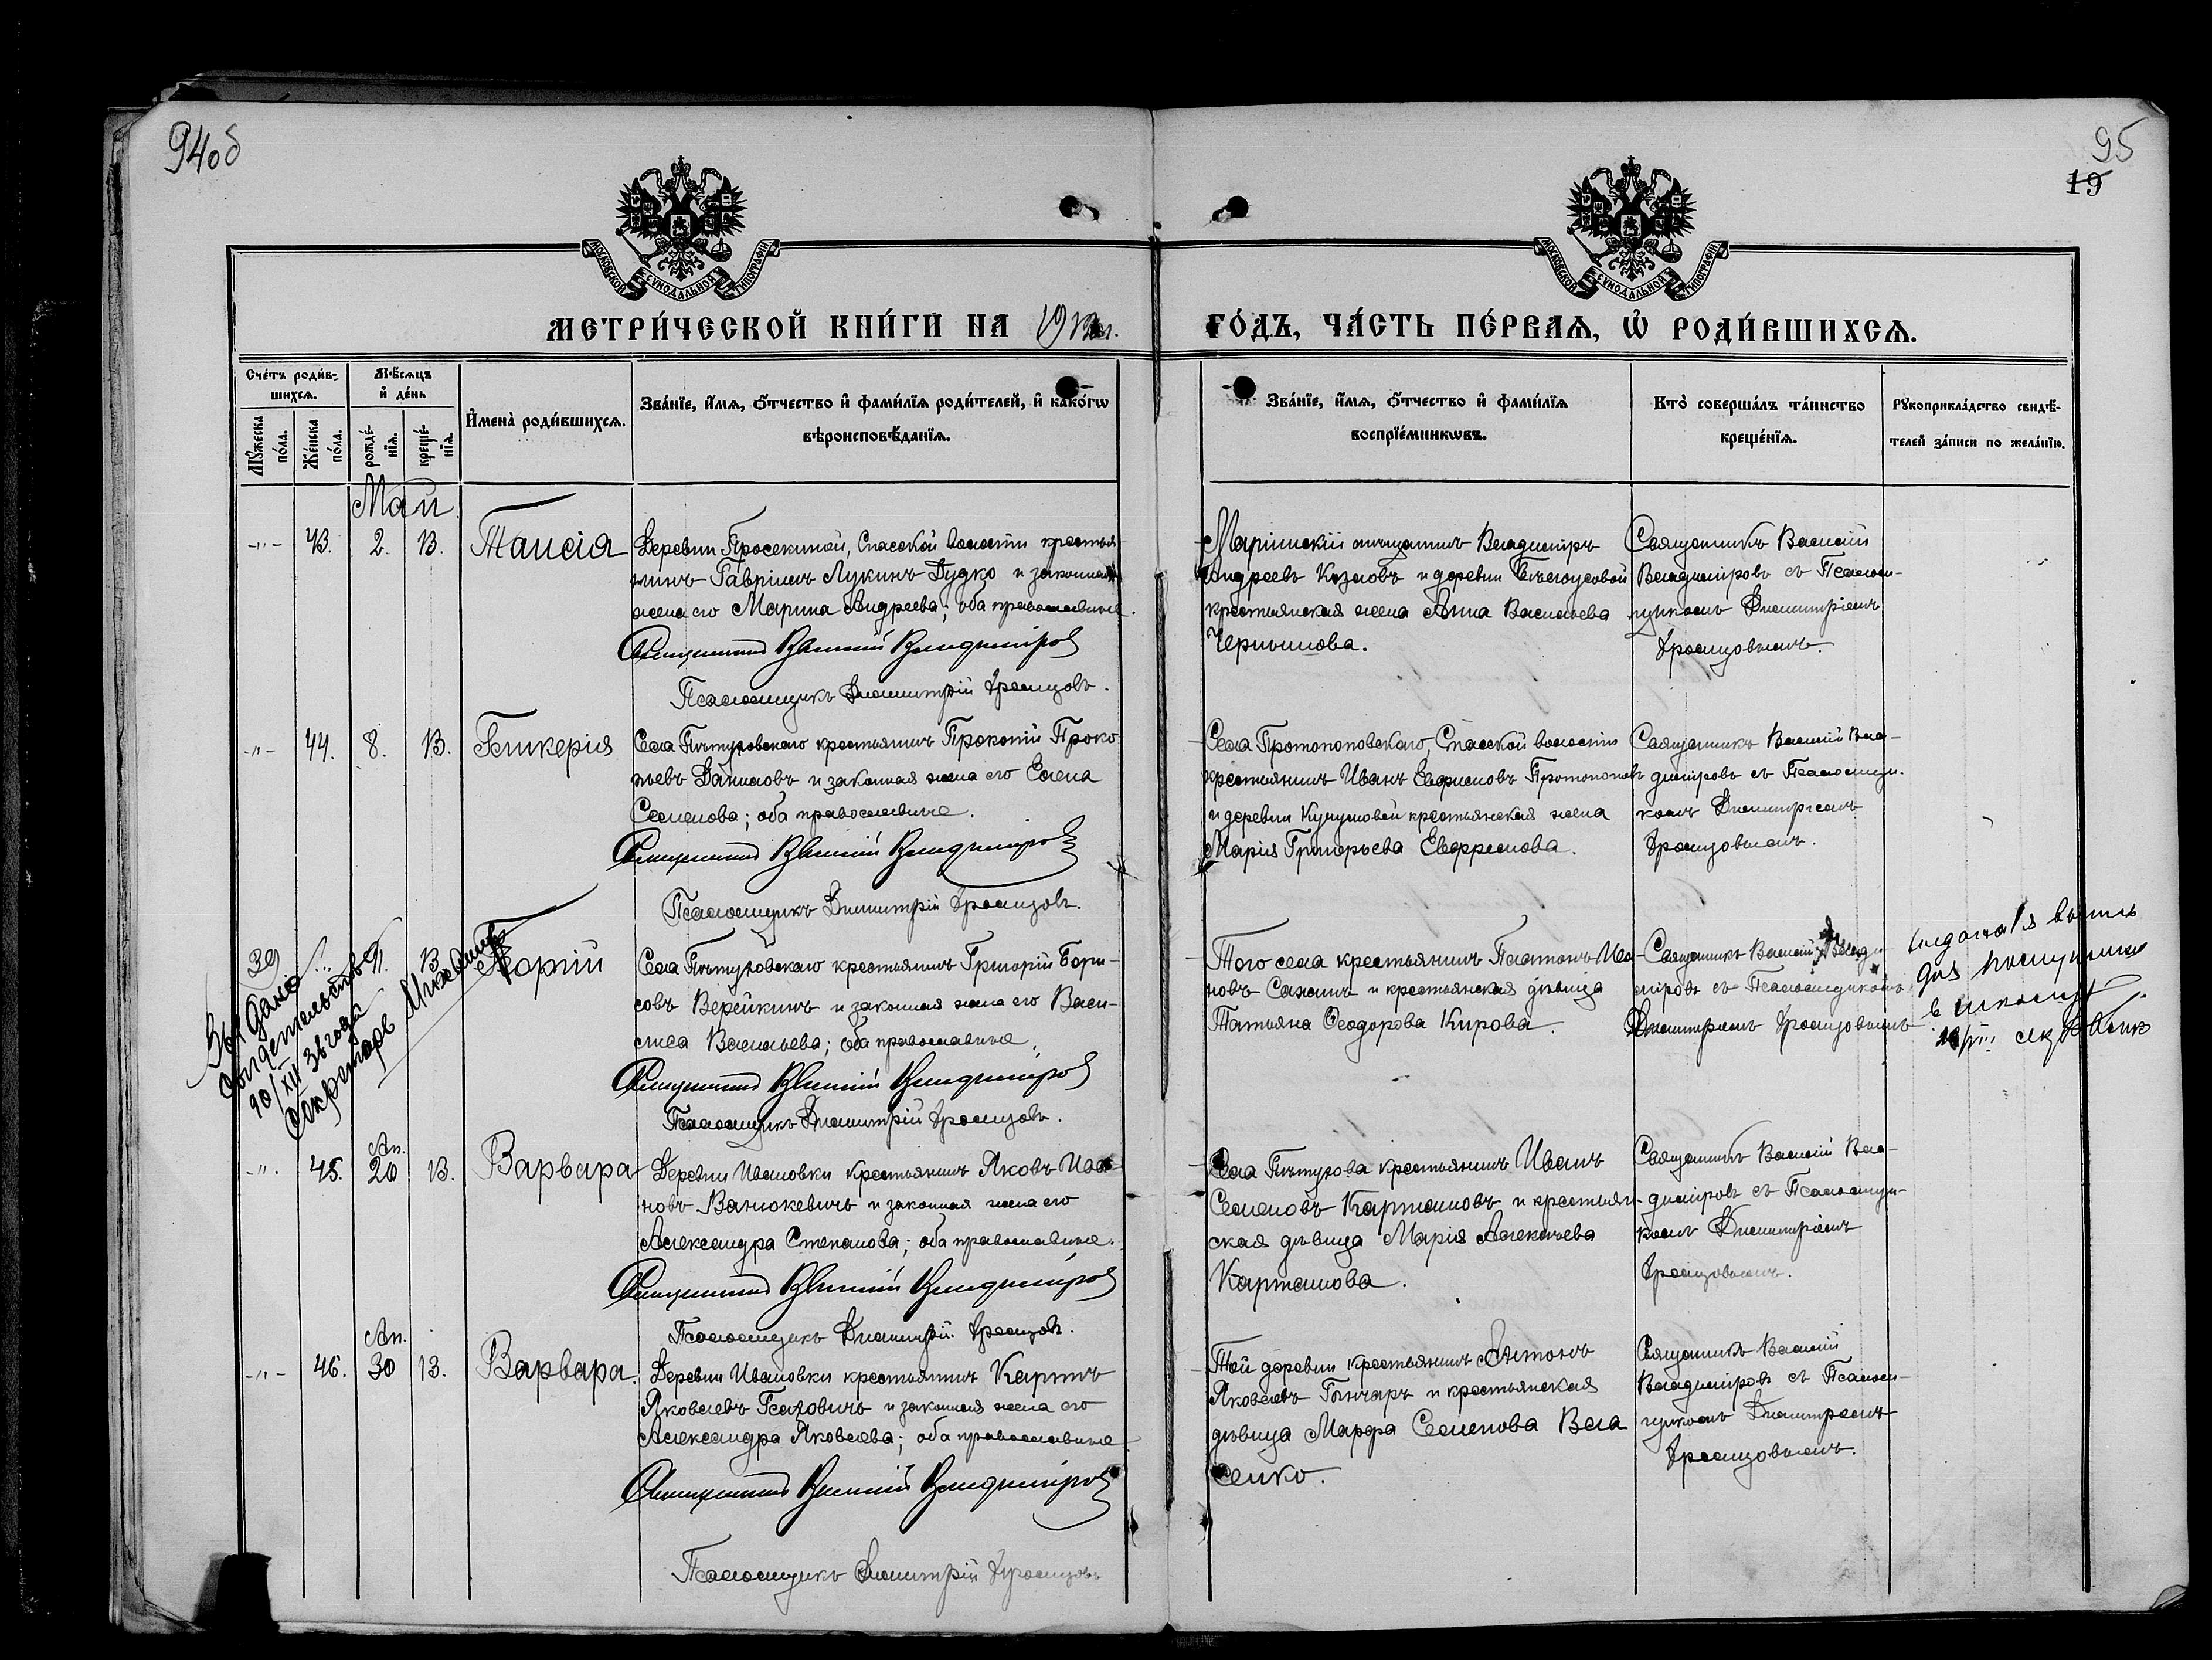 94об
95
19
МОСКОВСКОЙ СУНОДАЛЬНОЙ ТИПОГРАФІИ
МОСКОВСКОЙ СУНОДАЛЬНОЙ ТИПОГРАФІИ
МЕТРИ́ЧЕСКОЙ КНИ́ГИ НА 191
ГО́ДЪ, ЧА́СТЬ ПЕ́РВАѦ, Ѡ҆ РОДИ́ВШИХСѦ.
Сче́тъ роди́вшихсѧ.
Мꙋ́жеска по́ла.
Же́нска по́ла.
Мѣ́сѧцъ и҆ де́нь
рожде́нїѧ.
креще́нїѧ.
И҆мена̀ роди́вшихсѧ.
Зва́нїе, и҆́мѧ, ѻ҆́тчество и҆ фами́лїѧ роди́телей, и҆ како́гѡ вѣроисповѣ́данїѧ.
Зва́нїе, и҆́мѧ, ѻ҆́тчество и҆ фами́лїѧ воспрїе́мникѡвъ.
Кто̀ соверша́лъ та́инство креще́нїѧ.
Рꙋкоприкла́дство свидѣ́телей за́писи по жела́нїю.
Май
-"- 43. 2. 13. Таисія
Деревни Просекиной, Спасской волости крестья
нинъ Гавріилъ Лукинъ Дудко и законная
жена его Марина Андреева; оба православные.
Священникъ Василій Владиміровъ
Псаломщикъ Димитрій Хромцовъ.
Маріинскій мѣщанинъ Владиміръ
Андреевъ Козловъ и деревни Бѣлоусовой
крестьянская жена Анна Васильева
Чернышова.
Священникъ Василій
Владиміровъ съ Псалом-
щикомъ Димитріемъ
Хромцовымъ.
-"- 44. 8. 13. Гликерія
Села Пѣтуховскаго крестьянинъ Прокопій Проко
пьевъ Даниловъ и законная жена его Елена
Семенова; оба православные.
Священникъ Василій Владиміровъ
Псаломщикъ Димитрій Хромцовъ.
Села Протопоповскаго, Спасской волости
крестьянинъ Иванъ Евфимовъ Протопоповъ
и деревни Кукушовой крестьянская жена
Марія Григорьева Евфремова.
Священникъ Василій Вла-
диміровъ съ Псаломщи-
комъ Димитріемъ
Хромцовымъ.
39 " 11. 13
Села Пѣтуховскаго крестьянинъ Григорій Бори-
совъ Верейкинъ и законная жена его Васи-
лиса Васильева; оба православные.
Священникъ Василій Владиміровъ
Псаломщикъ Димитрій Хромцовъ.
Того села крестьянинъ Платонъ Ива-
новъ Сажинъ и крестьянская дѣвица
Татьяна Ѳеодорова Кирова.
Священникъ Василій Влади
міровъ съ Псаломщикомъ
Димитріемъ Хромцовымъ
Выдано
свидетельство
90/XII 36 года
Секретарь
выпись
для поступления
в школу
Ап.
-"- 45. 20 13. Варвара
Деревни Ивановки крестьянинъ Яковъ Ива
новъ Ванюкевичъ и законная жена его
Александра Степанова; оба православные.
Священникъ Василій Владиміровъ
Псаломщикъ Димитрій Хромцовъ.
Села Пѣтухова крестьянинъ Иванъ
Семеновъ Карташовъ и крестьян-
ская дѣвица Марія Алексѣева
Карташова.
Священникъ Василій Вла-
диміровъ съ Псаломщи-
комъ Димитріемъ
Хромцовымъ.
Ап.
-"- 46. 30 13. Варвара.
Деревни Ивановки крестьянинъ Карпъ
Яковлевъ Гсаховичъ и законная жена его
Александра Яковлева; оба православные
Священникъ Василій Владиміровъ
Псаломщикъ Димитрій Хромцовъ
Той деревни крестьянинъ Антонъ
Яковлевъ Гончаръ и крестьянская
дѣвица Марфа Семенова Вла
сенко.
Священникъ Василій
Владиміровъ съ Псалом-
щикомъ Димитріемъ
Хромцовымъ.